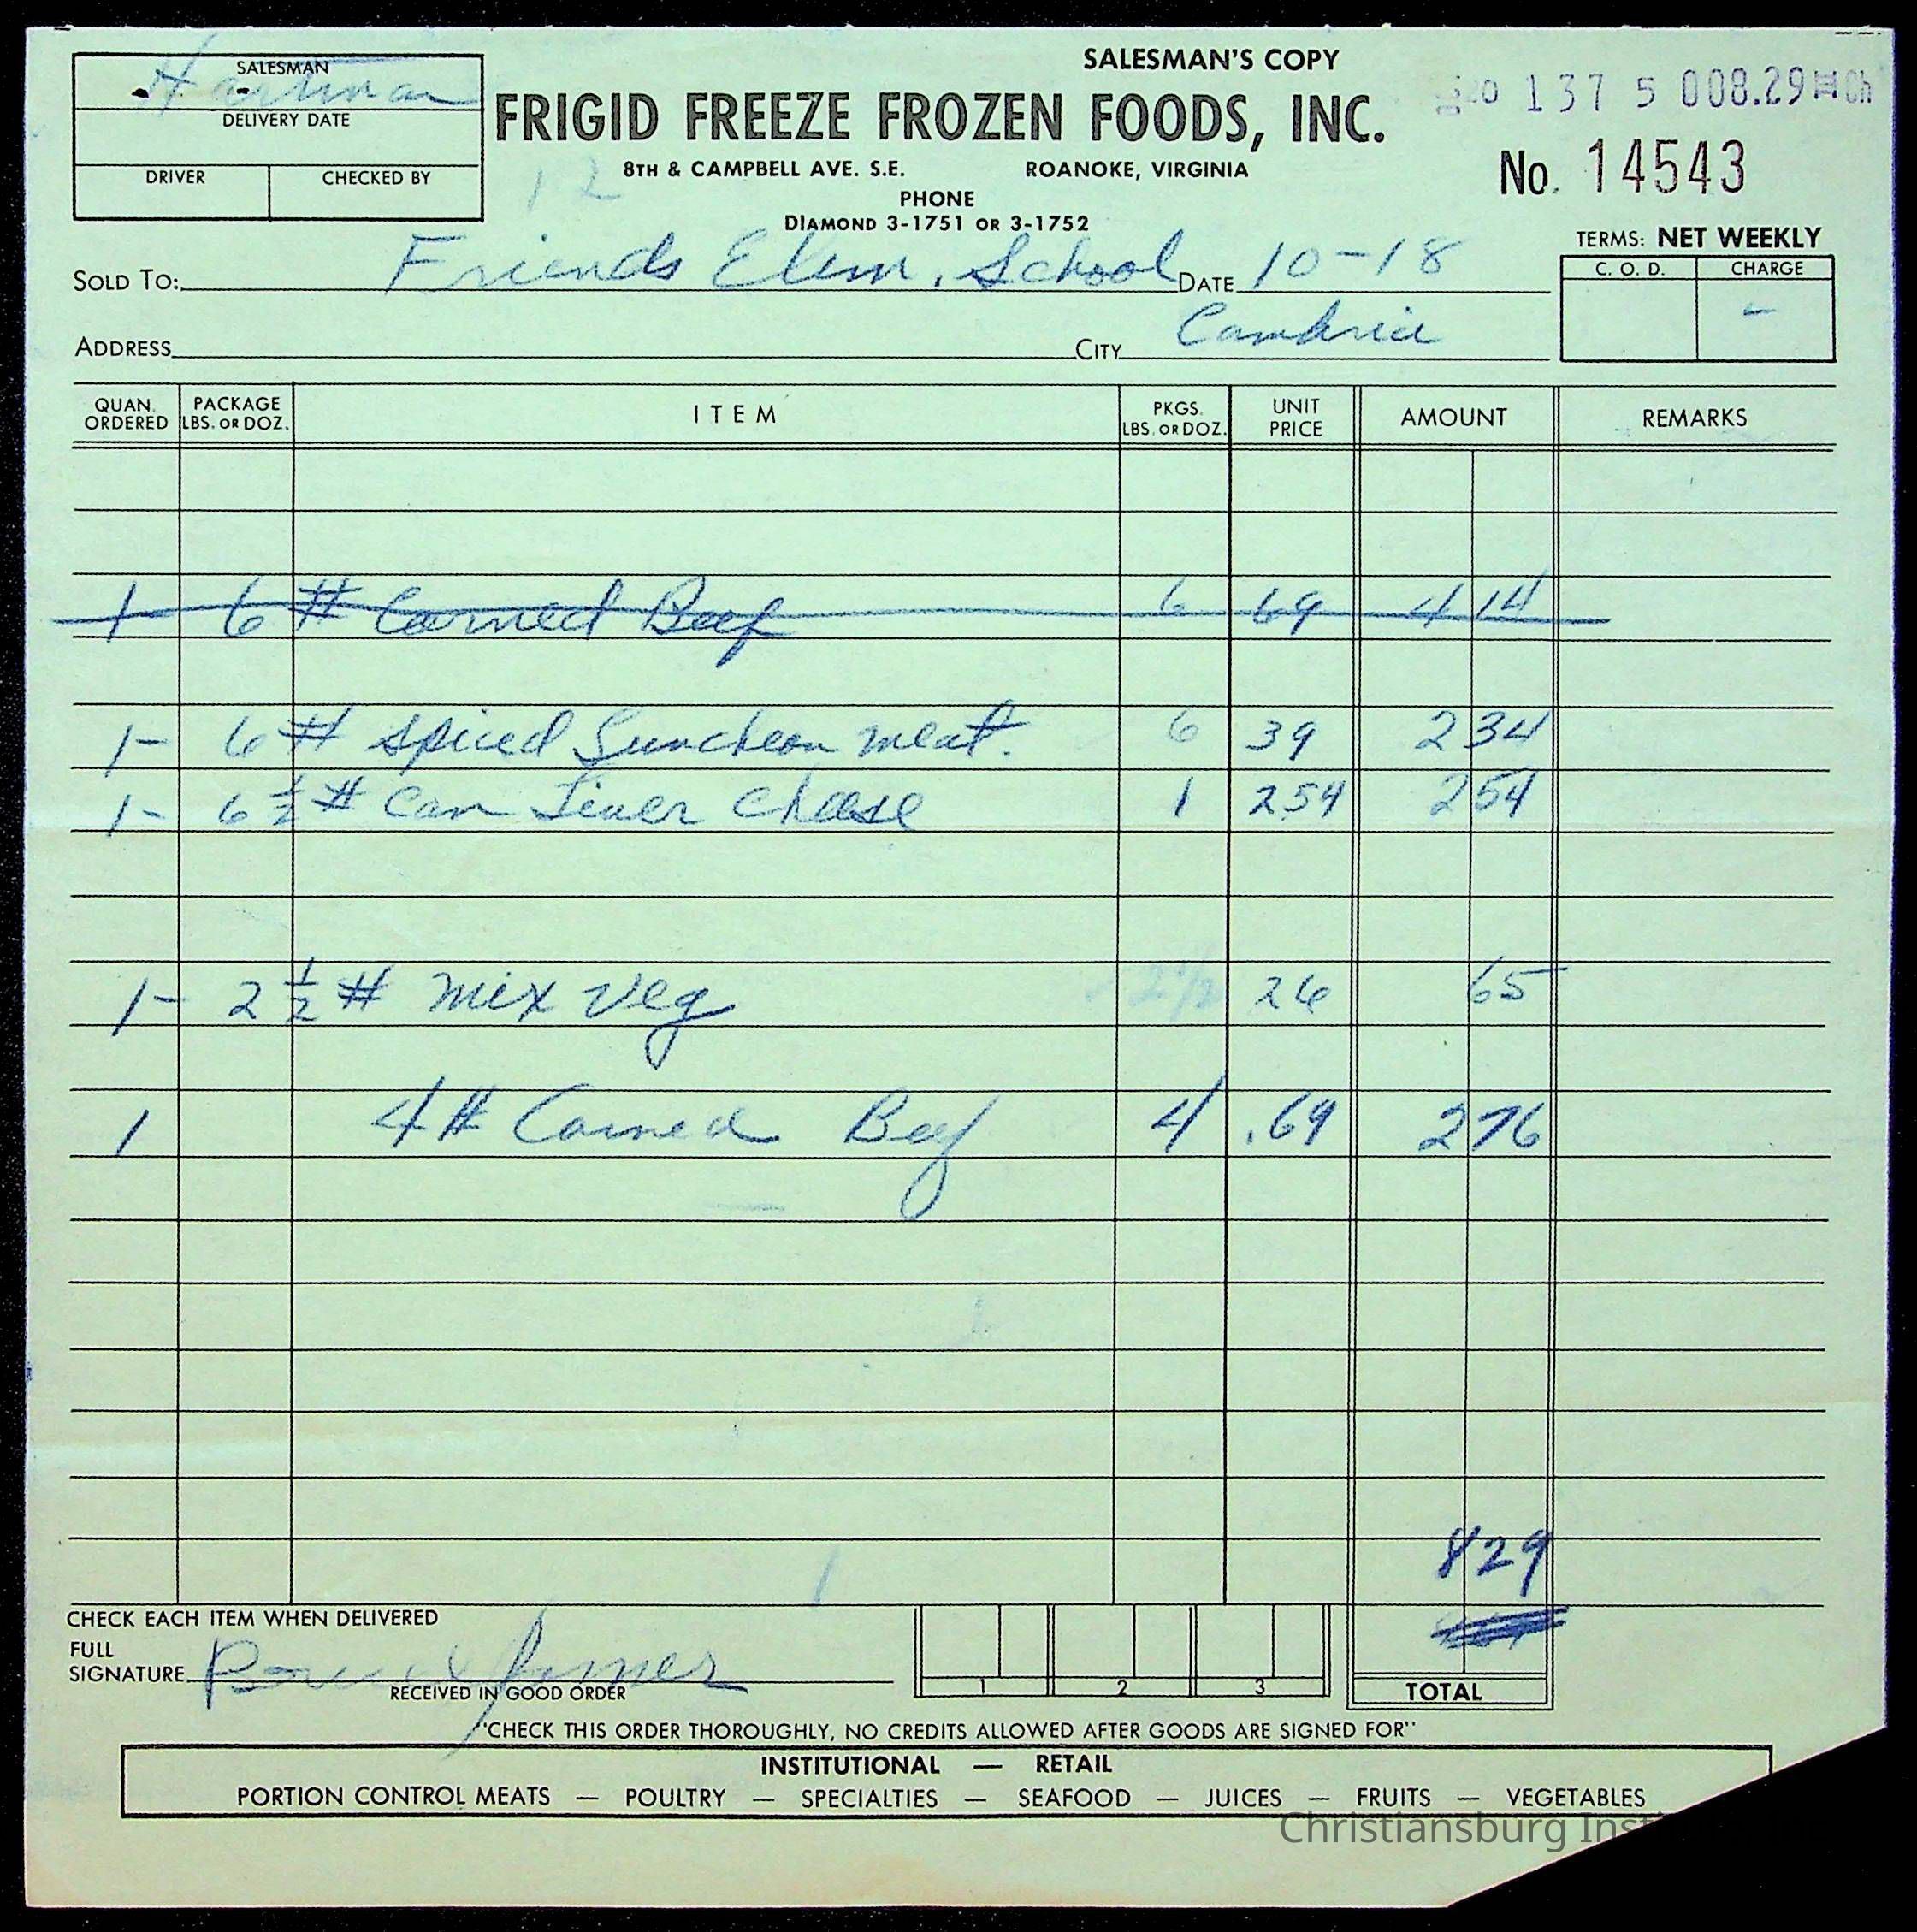 SALESMAN'S COPY
SALESMAN
Hartman
137 5 008.29
DELIVERY DATE
FRIGID FREEZE FROZEN FOODS, INC.
DRIVER CHECKED BY
12
8TH & CAMPBELL AVE. S.E. ROANOKE, VIRGINIA
No. 14543
PHONE
DIAMOND 3-1751 OR 3-1752
TERMS: NET WEEKLY
SOLD TO: Friends Elem. School DATE 10-18
C. O. D. CHARGE
-
ADDRESS CITY Cambria
QUAN. ORDERED PACKAGE LBS. OR DOZ. ITEM PKGS. LBS. OR DOZ. UNIT PRICE AMOUNT REMARKS
1 6 # Corned Beef 6 69 4 14
1- 6 # spiced Luncheon meat. 6 39 2 34
1- 6 1/2 # Can Liver Cheese 1 254 2 54
1- 2 1/2 # mix veg 2 1/2 26 65
1 4 # Corned Beef 4 .69 2 76
8 29
CHECK EACH ITEM WHEN DELIVERED
FULL
SIGNATURE
RECEIVED IN GOOD ORDER
1 2 3 TOTAL
"CHECK THIS ORDER THOROUGHLY, NO CREDITS ALLOWED AFTER GOODS ARE SIGNED FOR"
INSTITUTIONAL — RETAIL
PORTION CONTROL MEATS — POULTRY — SPECIALTIES — SEAFOOD — JUICES — FRUITS — VEGETABLES
Christiansburg Inst